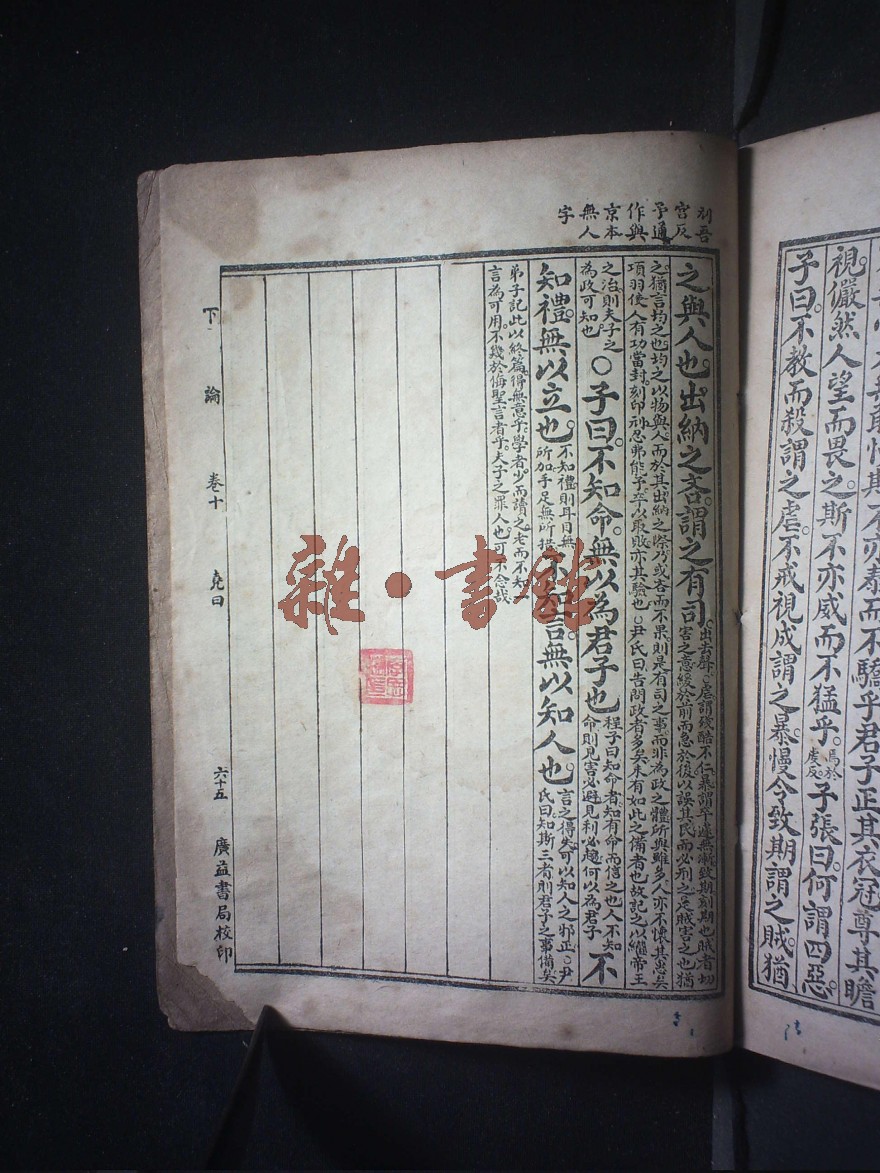 視儼然人望而畏之斯不亦威而不猛乎。焉於虔反子張曰。何謂四惡。
子曰。不教而殺謂之虐。不戒視成謂之暴。慢令致期謂之賊。猶
刓吾
官反
予通
作與
京本
無人
字
之與人也。出納之吝。謂之有司。出去聲。○虐謂殘酷不仁。暴謂卒遽無漸。致期刻期也。賊者切
害之意緩於前而急於後以誤其民而必刑之是賊害之也猶
之猶言均之也均之以物與人而於其出納之際乃或吝而不果則是有司之事而非為政之體所與雖多人亦不懷其惠矣
項羽使人有功當封刻印刓忍弗能予卒以取敗亦其驗也○尹氏曰告問政者多矣未有如此之備者也故記之以繼帝王
之治則夫子之
為政可知也
○子曰。不知命。無以為君子也
程子曰知命者知有命而信之也人不知
命則見害必避見利必趨何以為君子
不
知禮。無以立也。
不知禮則耳目無
所加手足無所措
不知言。無以知人也。
言之得失可以知人之邪正。○尹
氏曰。知斯三者則君子之事備矣
弟子記此以終篇得無意乎學者少而讀之老而不知
言為可用。不幾於侮聖言者乎。夫子之罪人也可不念哉
下論
卷十
堯曰
六十五
廣益書局校印
雜·書館